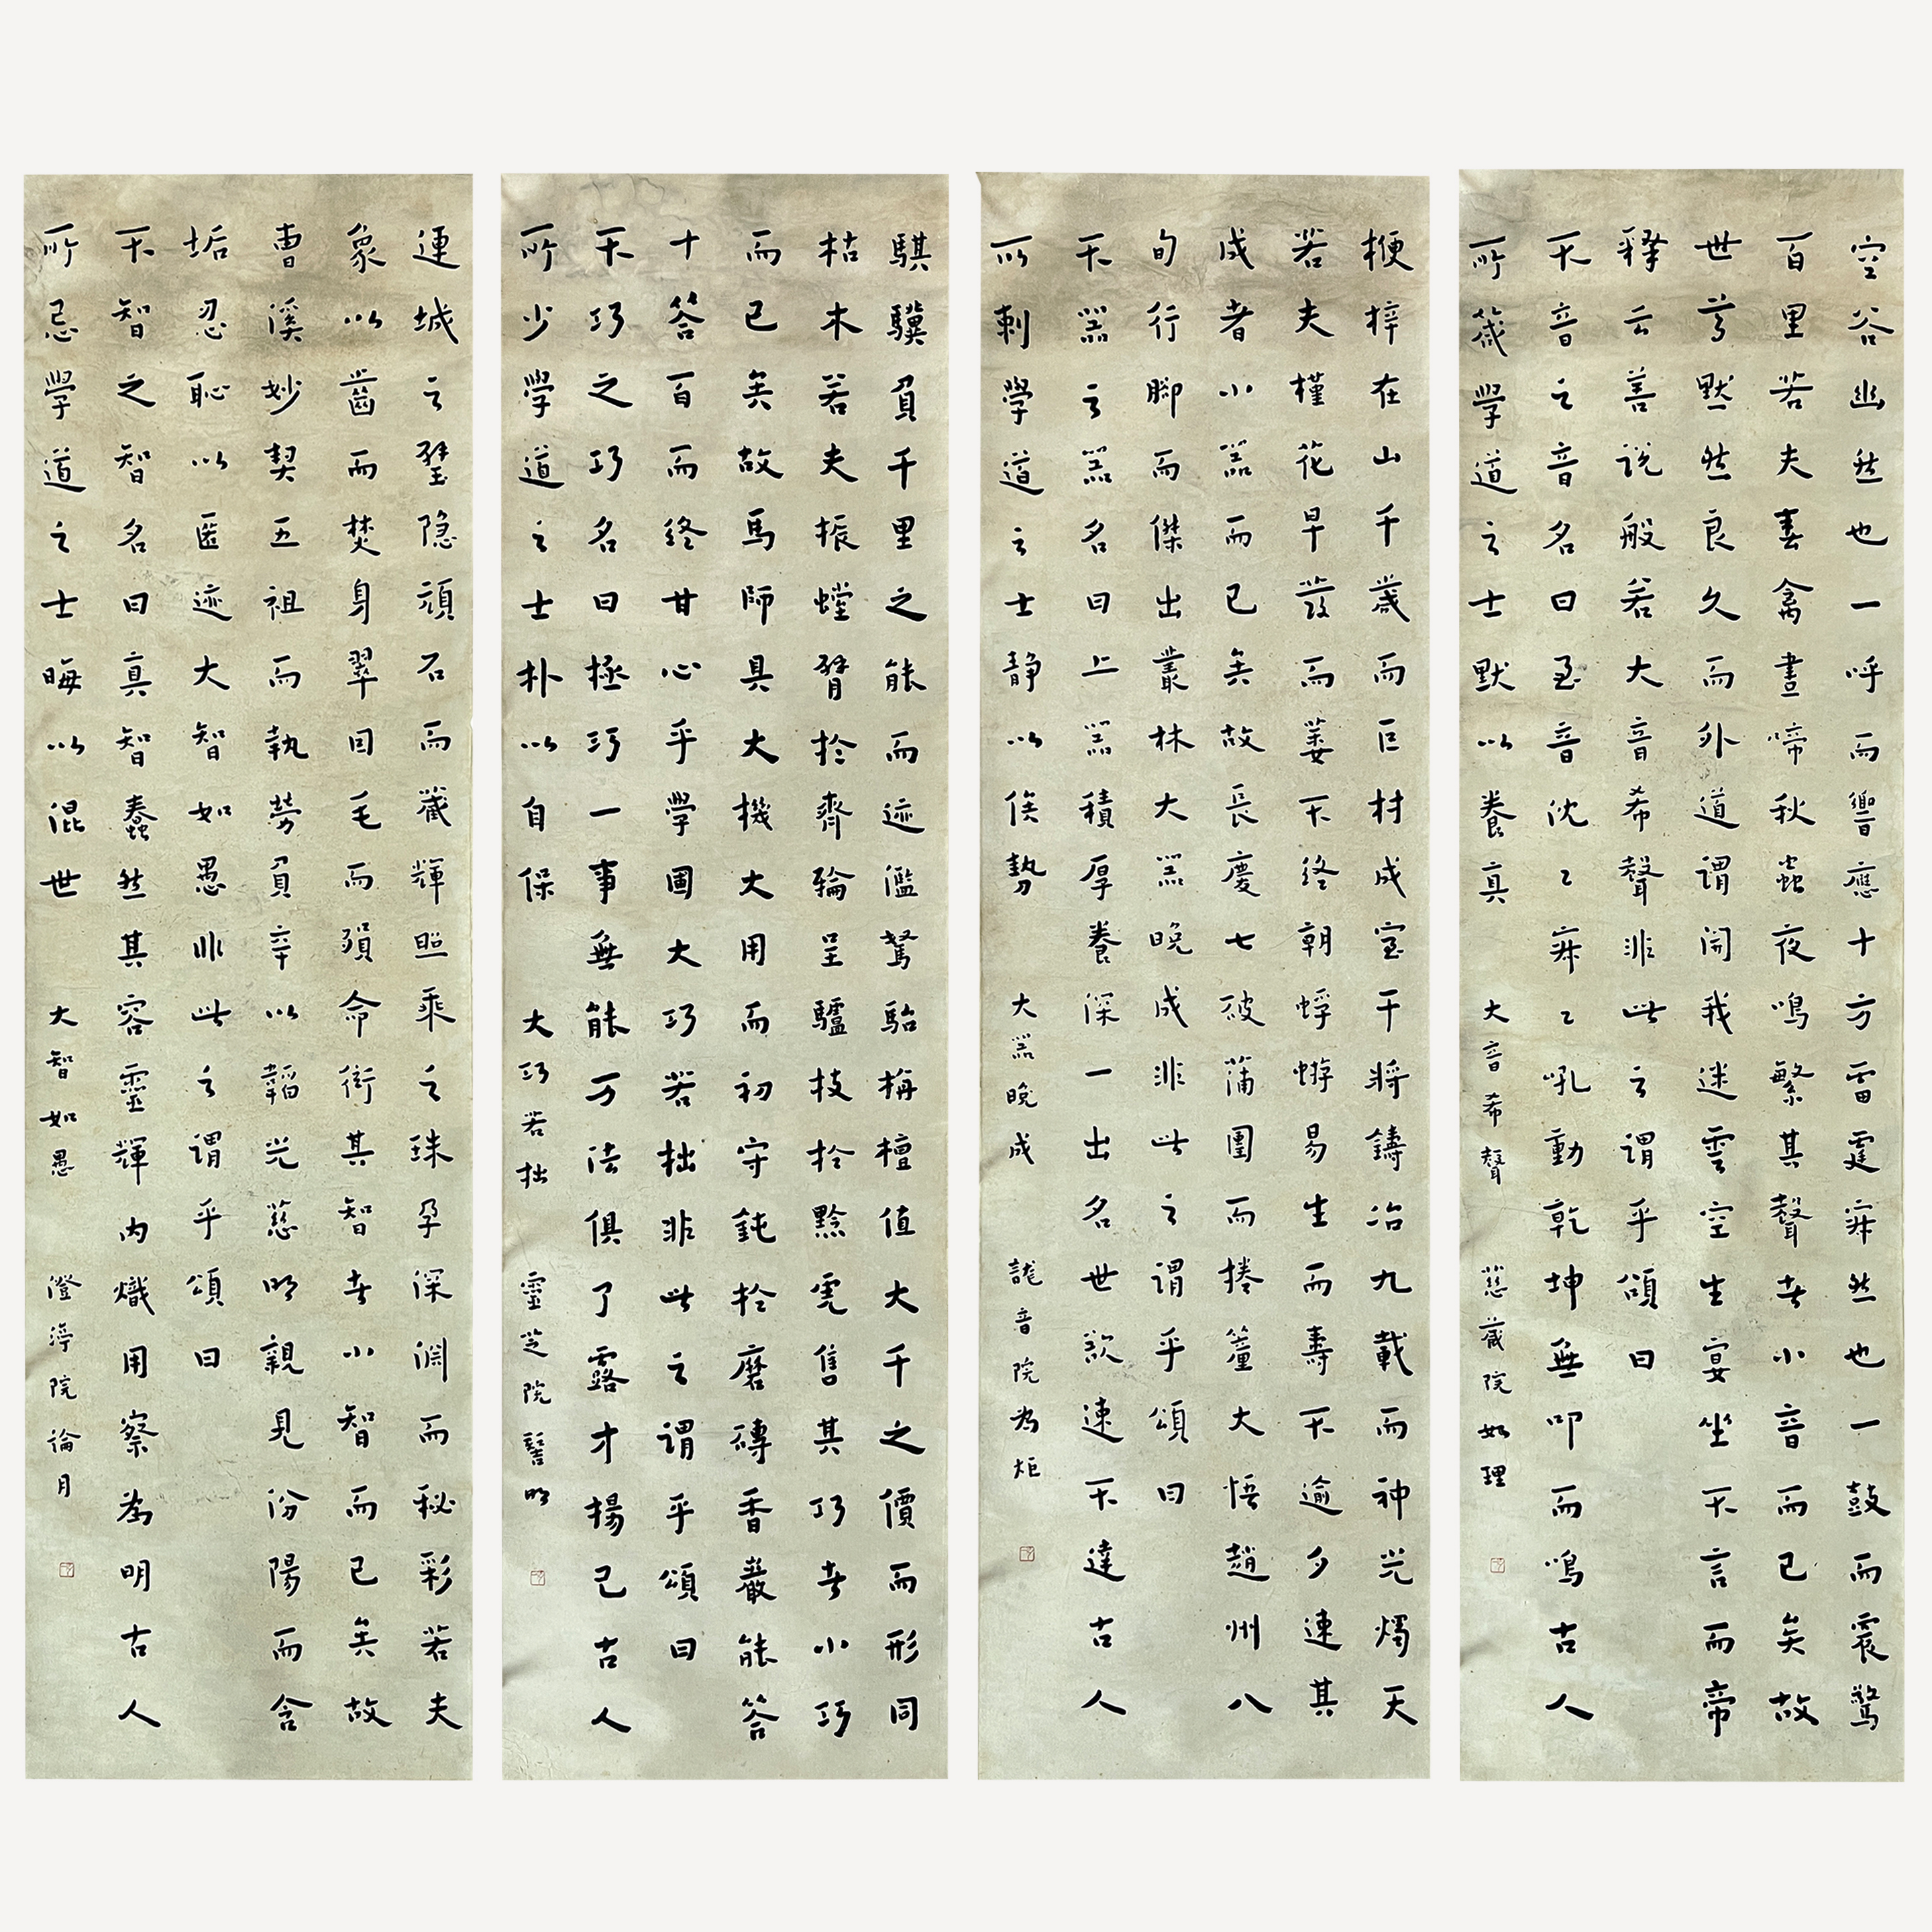 空谷幽然也一呼而響應十方雷霆寂然也一鼓而震驚
百里若夫春禽晝啼秋蟲夜鳴繁其聲者小音而已矣故
世尊默然良久而外道謂開我迷雲空生宴坐不言而帝
釋云善說般若大音希聲非此之謂乎頌曰
不音之音名曰至音沈々寂々吼動乾坤無叩而鳴古人
所箴學道之士默以養真 大音希聲 慈蔵院如理
梗梓在山千歲而巨材成室干將鑄冶九載而神光燭天
若夫槿花早發而萎不終朝蜉蝣易生而壽不逾夕速其
成者小器而已矣故長慶七破蒲團而捲簾大悟趙州八
旬行腳而傑出叢林大器晚成非此之謂乎頌曰
不器之器名曰上器積厚養深一出名世欲速不達古人
所刺學道之士靜以俟勢 大器晚成 音院為炬
騏驥負千里之能而迹濫駑駘栴檀值大千之價而形同
枯木若夫振螳臂於齊輪呈驢技於黔虎售其巧者小巧
而已矣故馬師具大機大用而初守鈍於磨磚香嚴能答
十答百而終甘心乎學圃大巧若拙非此之謂乎頌曰
不巧之巧名曰極巧一事無能万法俱了露才揚己古人
所少學道之士朴以自保 大巧若拙 靈芝院誓明
連城之璧隱頑石而藏輝照乘之珠孕深淵而秘彩若夫
象以齒而焚身翠因毛而殞命衒其智者小智而已矣故
曹溪妙契五祖而執勞負辛以韜光慈明親見汾陽而含
垢忍恥以匿迹大智如愚非此之謂乎頌曰
不智之智名曰真智蠢然其容靈輝內熾用察為明古人
所忌學道之士晦以混世 大智如愚 澄渟院論月